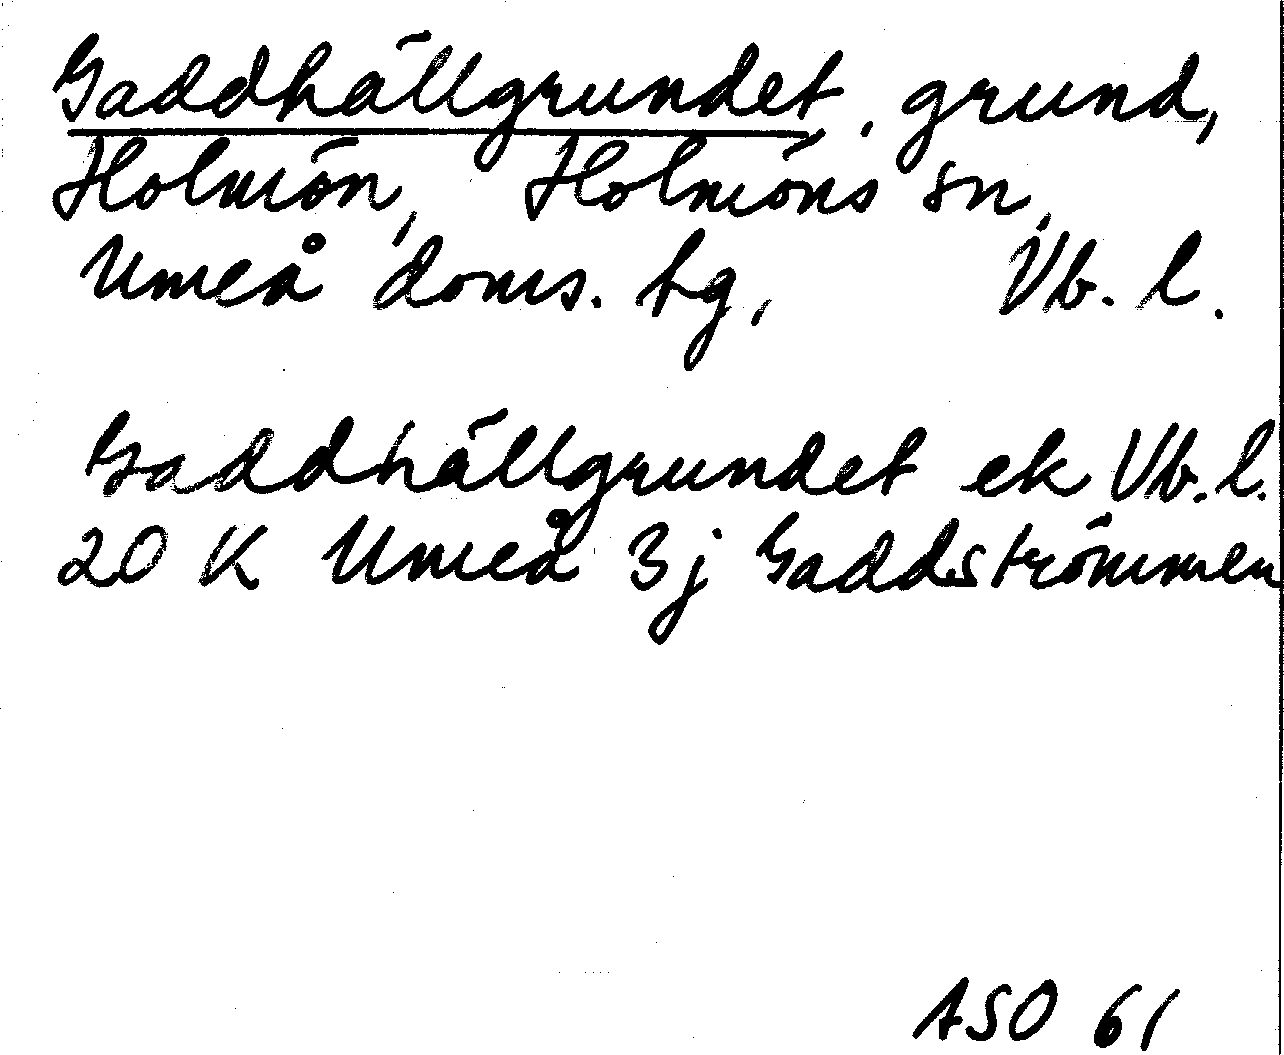 Gaddhällgrundet, grund,
Holmön, Holmöns sn,
Umeå doms. tg, Vb. l.
Gaddhällgrundet ek Vb. l.
20 K Umeå 3j Gaddströmmen
ASO 61